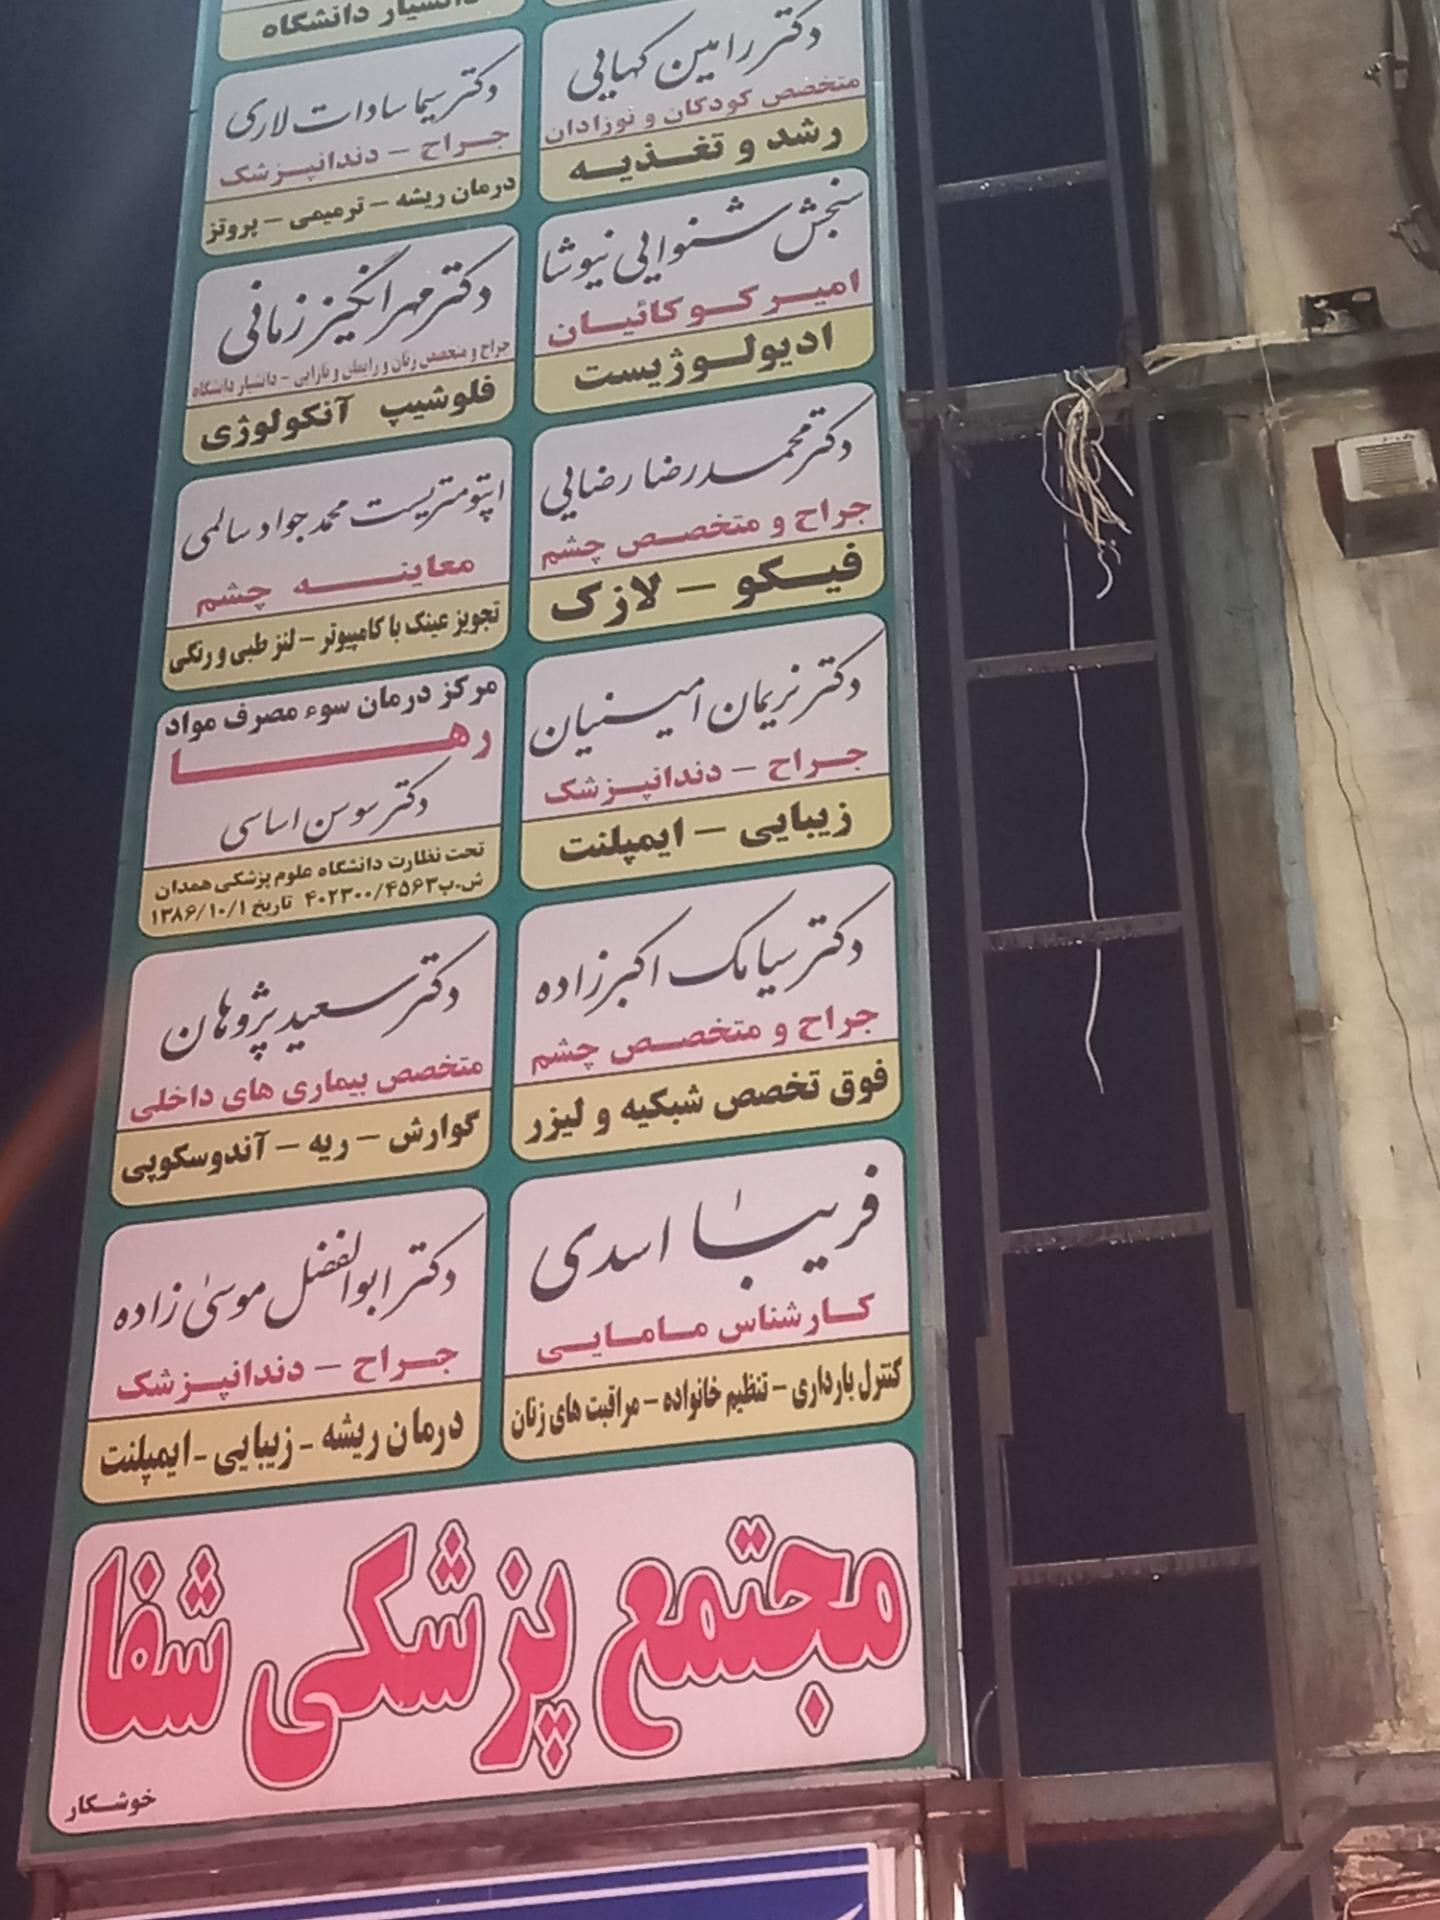 دانشیار دانشگاه
دکتر رامین کهیایی
متخصص کودکان و نوزادان
رشد و تغذیه
دکتر سیما سادات لاری
جراح - دندانپزشک
درمان ریشه - ترمیمی - پروتز
سنجش شنوایی نیوشا
امیر کوکائیان
ادیولوژیست
دکتر مهرانگیز زمانی
جراح و متخصص زنان و زایمان و نازایی - دانشیار دانشگاه
فلوشیپ آنکولوژی
دکتر محمدرضا رضایی
جراح و متخصص چشم
فیکو - لازک
اپتومتریست محمد جواد سالمی
معاینه چشم
تجویز عینک با کامپیوتر - لنز طبی و رنگی
دکتر نریمان امینیان
جراح - دندانپزشک
زیبایی - ایمپلنت
مرکز درمان سوء مصرف مواد
رها
دکتر سوسن اساسی
تحت نظارت دانشگاه علوم پزشکی همدان
ش.پ۴۰۲۳۰۰/۴۵۶۳ تاریخ ۱۳۸۶/۱۰/۱
دکتر سیامک اکبرزاده
جراح و متخصص چشم
فوق تخصص شبکیه و لیزر
دکتر سعید پژوهان
متخصص بیماری های داخلی
گوارش - ریه - آندوسکوپی
فریبا اسدی
کارشناس مامایی
کنترل بارداری - تنظیم خانواده - مراقبت های زنان
دکتر ابوالفضل موسیٰ زاده
جراح - دندانپزشک
درمان ریشه - زیبایی - ایمپلنت
مجتمع پزشکی شفا
خوشکار